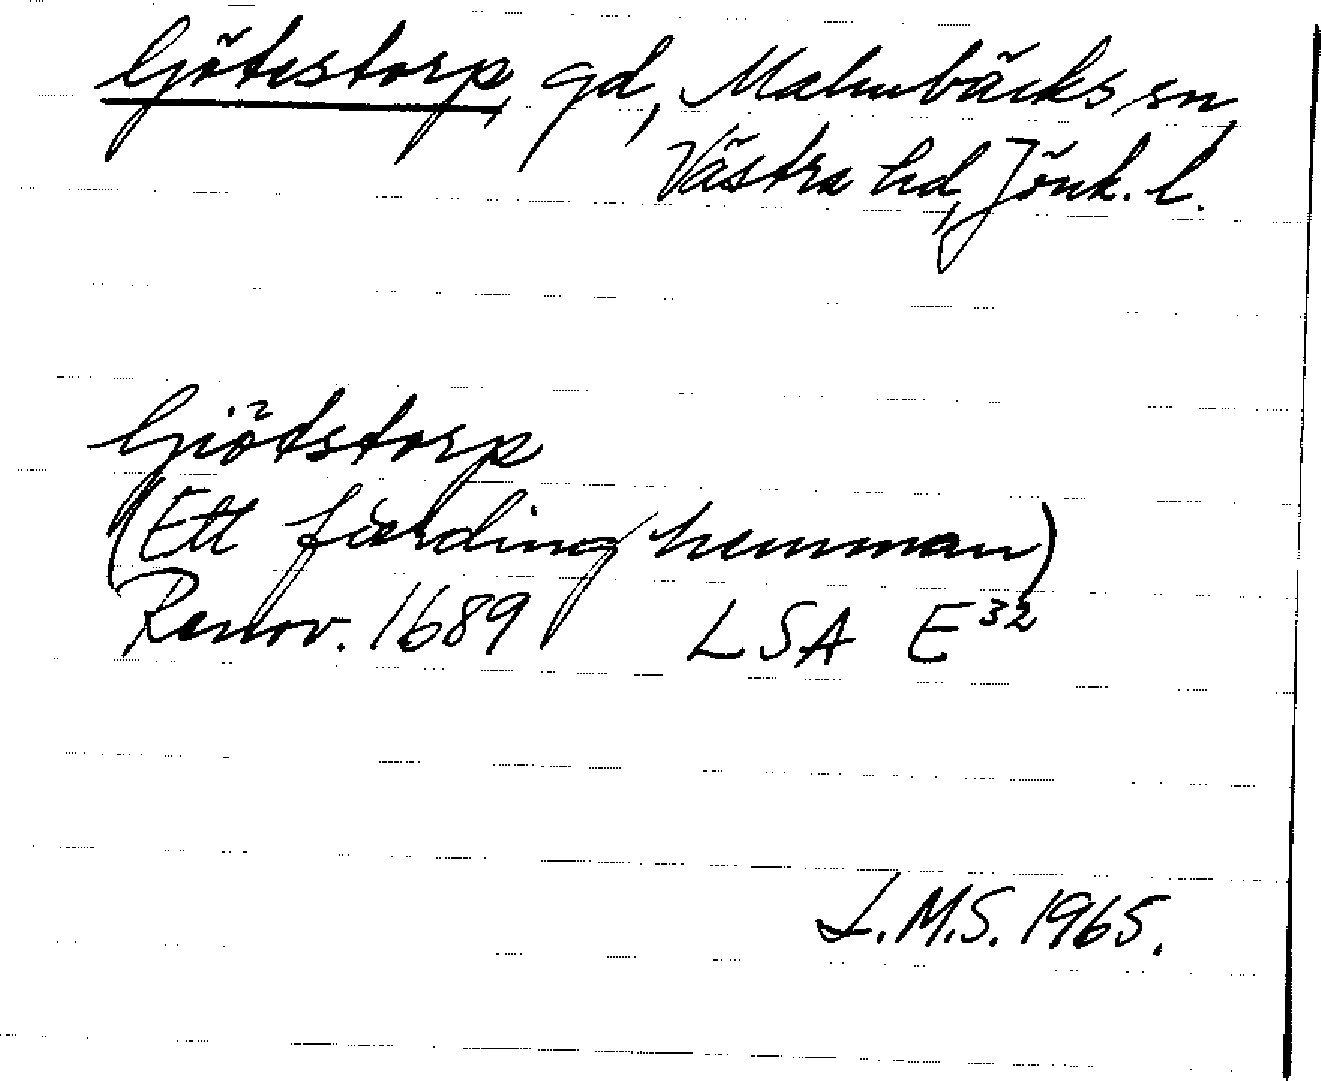 Gjötestorp, gd, Malmbäcks sn,
Västra hd, Jönk. l.
Giötstorp
(Ett fierding hemman)
Renov. 1689 LSA E32
L.M.S. 1965.